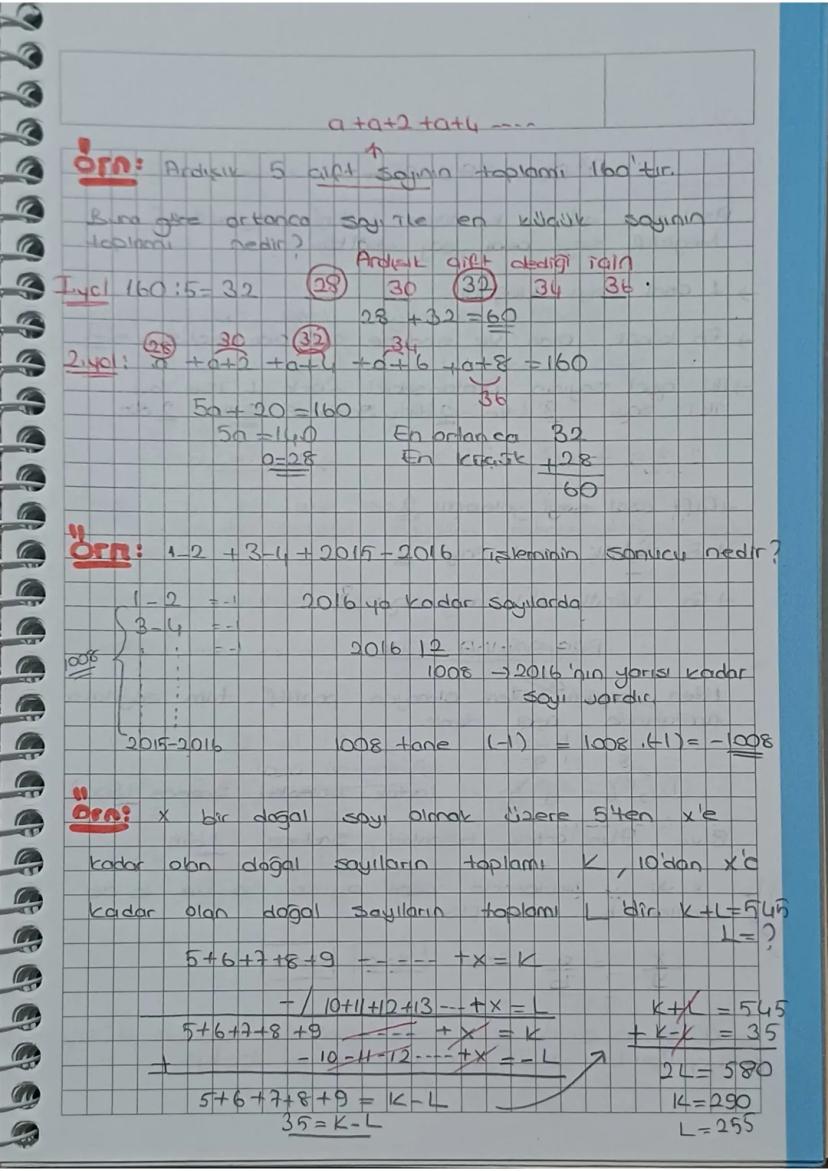 a+a+2 +a+4 ----
Örn: Ardışık 5 çift sayının toplamı 160'tır.
Buna göre ortanca sayı ile en küçük sayının
toplamı nedir?
Ardışık çift dediği için
1.yol 160:5=32 28 30 32 34 36.
28 +32 =60
28 30 32 34
2.yol: a +a+2 +a+4 +a+6 +a+8 =160
36
5a+20=160
5a=140 En ortanca 32
a=28 En küçük +28
60
Örn: 1-2 +3-4 + 2015-2016 işleminin sonucu nedir?
1-2 =-1 2016 ya kadar sayılarda
3-4 =-1
=-1 2016 12
1008 1008 → 2016'nın yarısı kadar
sayı vardır
2015-2016 1008 tane (-1) = 1008.(-1)= -1008
Örn: x bir doğal sayı olmak üzere 5'ten x'e
kadar olan doğal sayıların toplamı K, 10'dan x'e
kadar olan doğal sayıların toplamı L dir. K+L=545
L=?
5+6+7+8+9 ----- +x=K
-/ 10+11+12+13---+x=L K+L =545
5+6+7+8+9 ---- +x =K +K-L =35
+ -10-11-12----+x =-L
2L=580
5+6+7+8+9=K-L K=290
35=K-L L=255